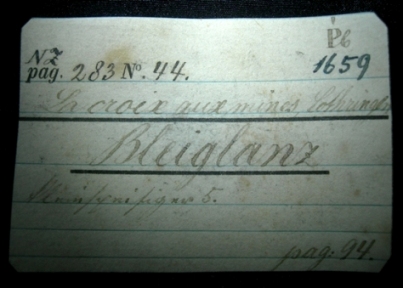 P6
NZ
pag. 283 No. 44.
1659
La croix aux mines, Lothringen
Bleiglanz
5.
pag: 94.